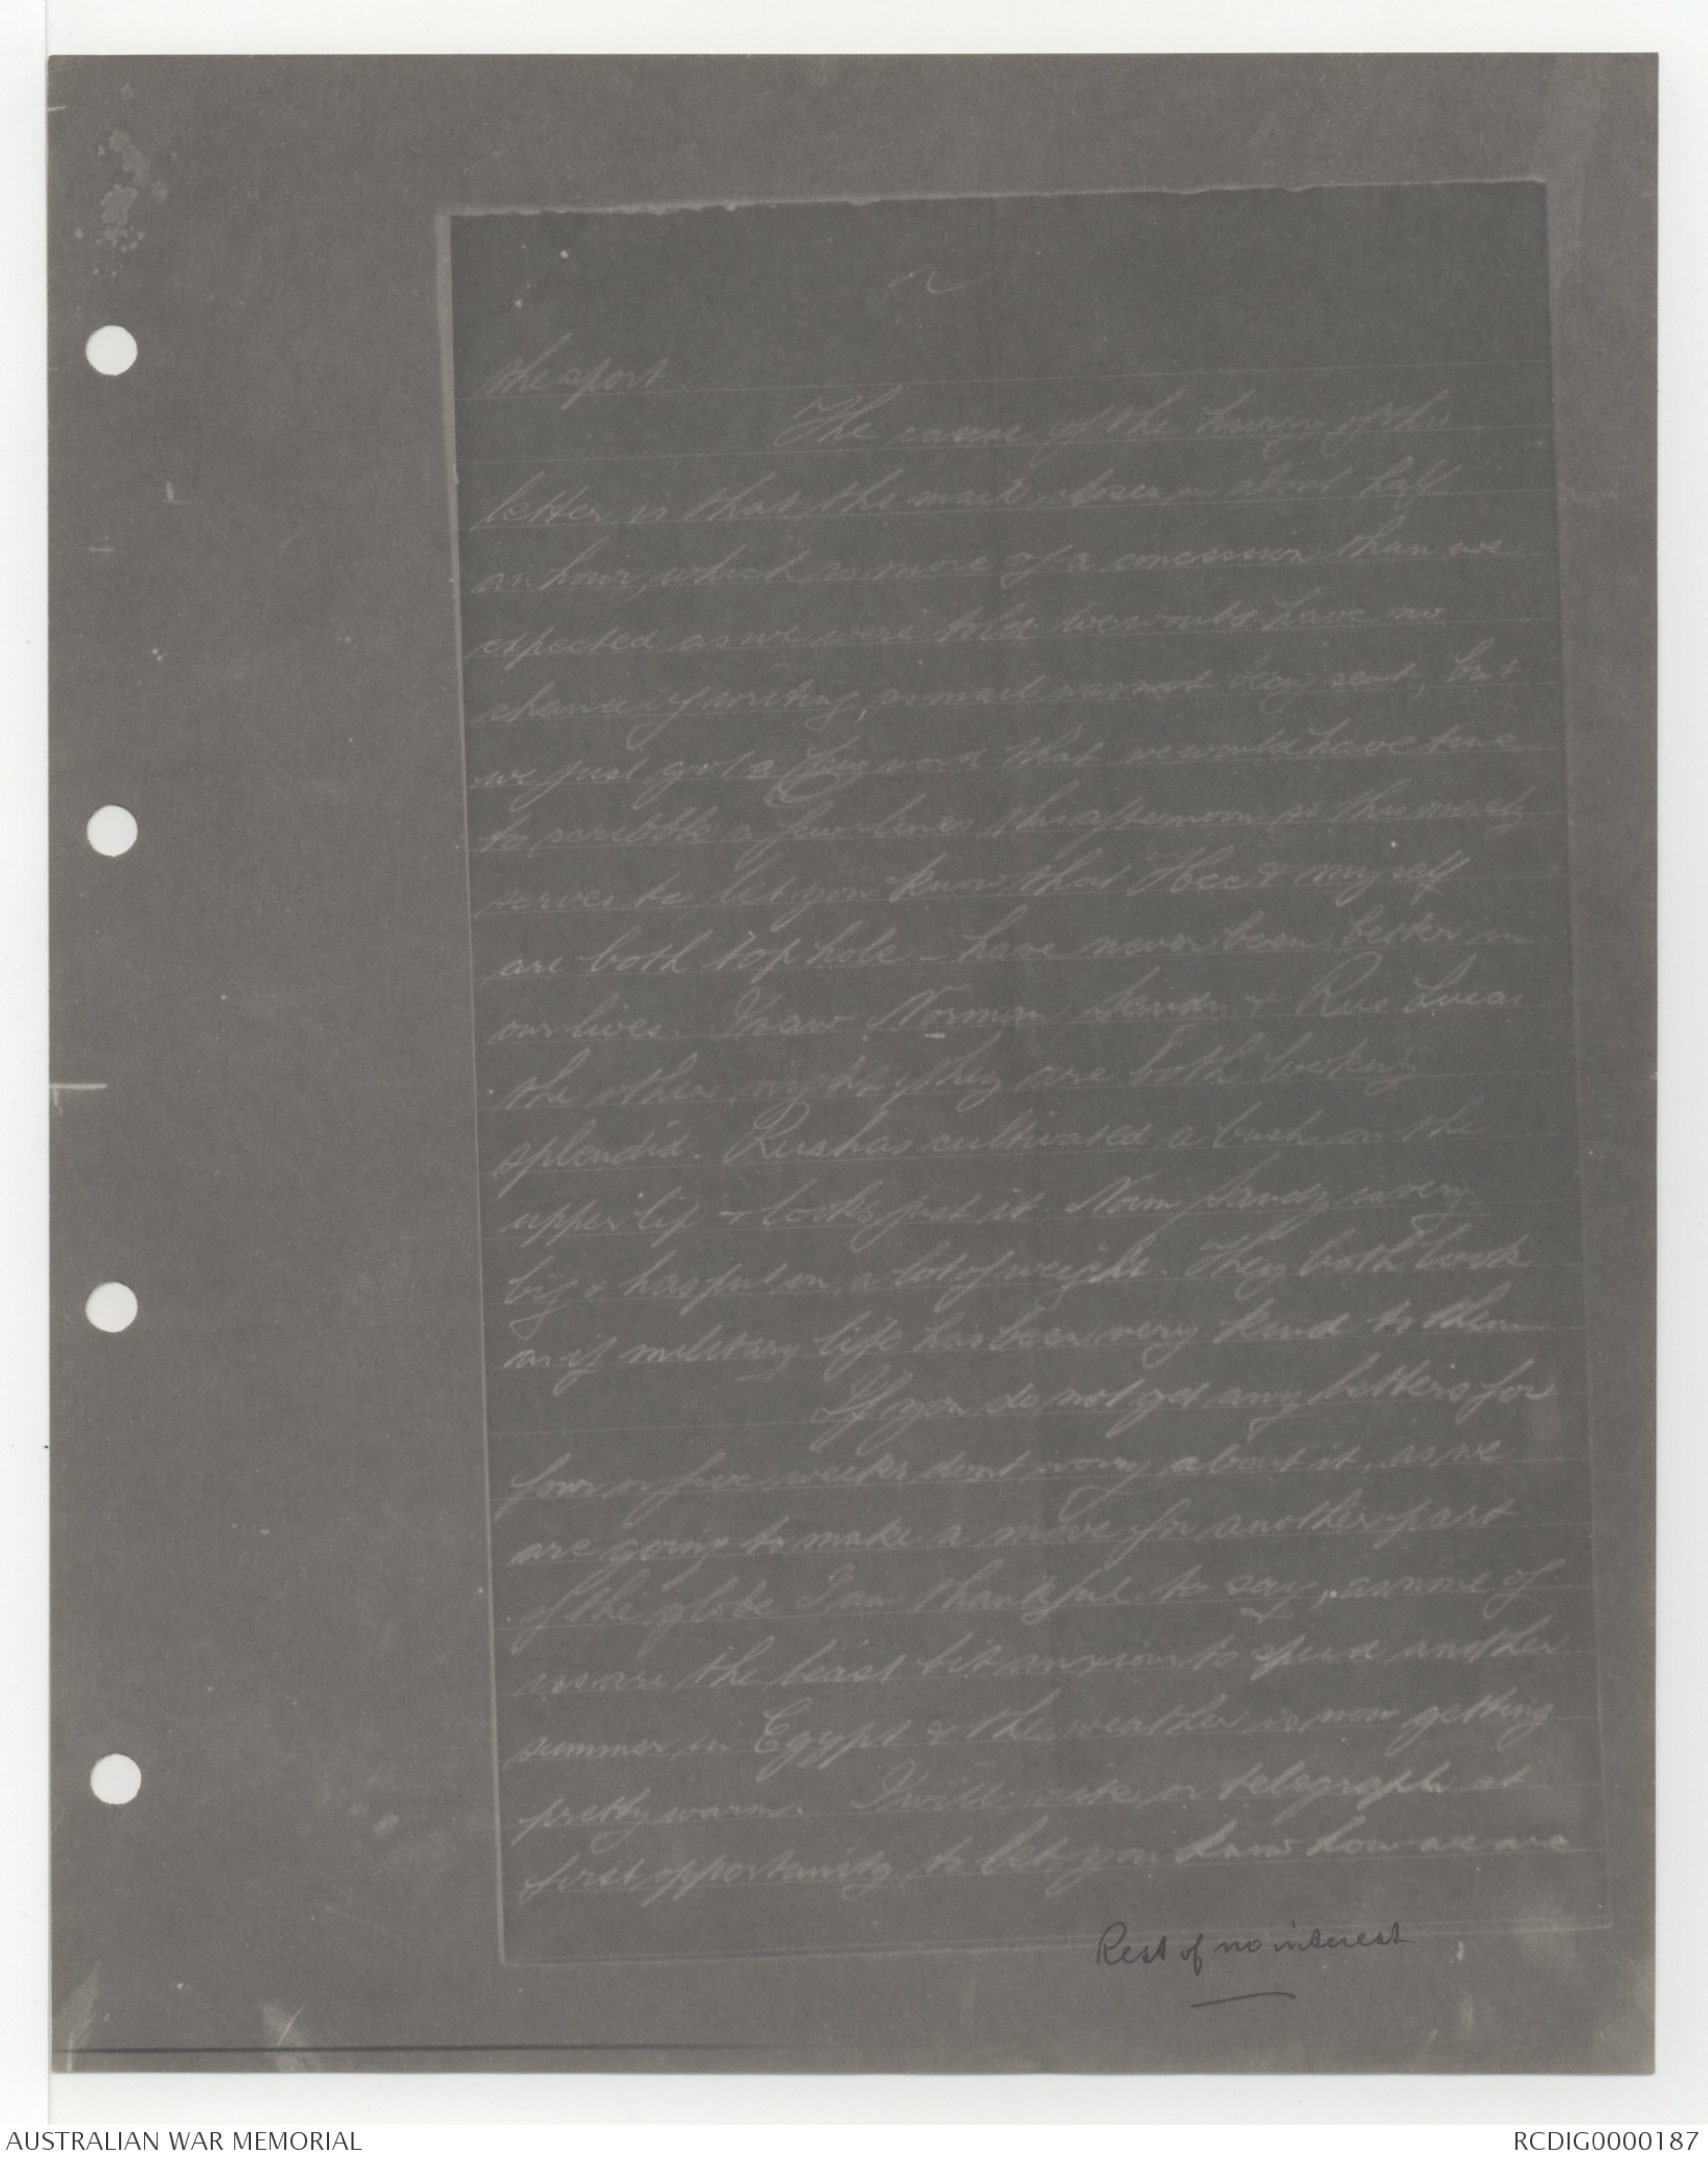 2
the sport
The cause of the hurry of this
letter is that the mail closes in about half
an hour, which is more of a concession than we
expected as we were told we would have no
chance of writing, as mail was not being sent, but
we just got a word that we would have time
to scribble a few lines this afternoon so this merely
serves to let you know that Hec & myself
are both top hole - have never been better in
our lives. I saw Norman Sandy & Rus Lucas
the other night, they are both looking
splendid. Rus has cultivated a bush on the
upper lip & looks just it. Norm Sandy is very
big & has put on a lot of weight. They both look
as if military life has been very kind to them
If you do not get any letters for
four or five weeks dont worry about it, as we
are going to make a move for another part
of the globe I am thankful to say, as none of
us are the least bit anxious to spend another
summer in Egypt & the weather is now getting
pretty warm. I will write or telegraph at
first opportunity to let you know how we are
Rest of no interest
AUSTRALIAN WAR MEMORIAL
RCDIG0000187